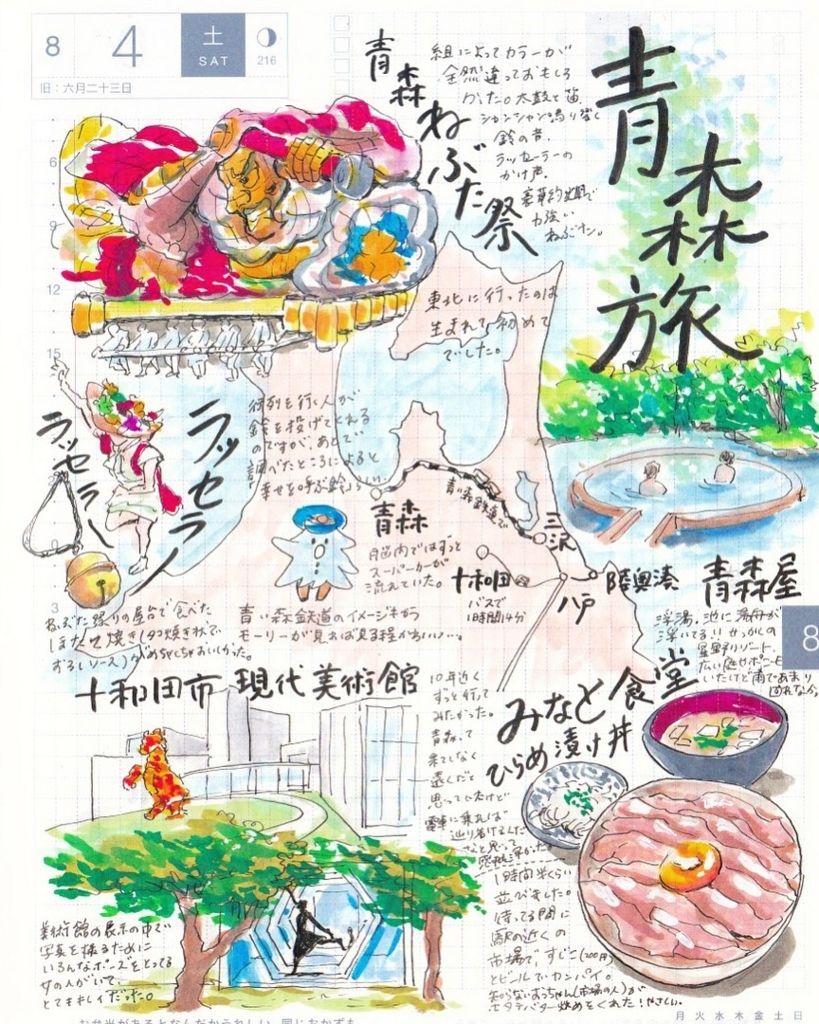 8
4
土
SAT
216
旧:六月二十三日
青森旅
青森ねぶた祭
組によってカラーが
全然違っておもしろ
かった。太鼓と笛、
シャンシャン鳴り響く
鈴の音、
ラッセーラーの
かけ声。
豪華絢爛で
力強い
ねぶた。
6
9
12
15
東北に行ったのは
生まれて初めて
でした。
ラッセラー
ラッセラー
行列を行く人が
鈴を投げてくれる
のですが、あとで
調べたところによると
幸せを呼ぶ鈴らしい。
青森
青い森鉄道で
三沢
脳内ではずっと
スーパーカーが
流れていた。
十和田
バスで
1時間14分
八戸
陸奥湊
青森屋
3
ねぶた祭りの屋台で食べた
ほたて焼き(タコ焼き状で
がめちゃくちゃおいしかった。
青い森鉄道のイメージキャラ
モーリーが見れば見る程かわいい…。
浮湯。池に湯舟が
浮いてる!せっかくの
星野リゾート、
広い庭やポニーも
いたけど雨であまり
回れなかった
8
十和田市現代美術館
10年近く
ずっと行って
みたかった。
青森って
果てしなく
遠くだと
思っていたけど
電車に乗れば
辿り着けるんだ
なと思って
感慨深かった。
みなと食堂
ひらめ漬け丼
1時間半くらい
並びました。
待ってる間に
駅の近くの
市場で、すじこ(200円)
とビールでカンパイ。
知らないおっちゃん(市場の人)が
ホタテバター炒めをくれた!やさしい。
美術館の展示の中で
写真を撮るために
いろんなポーズをとってる
女の人がいて、
とてもキレイだった。
お弁当があるとなんだかうれしい。同じおかずも
月 火 水 木 金 土 日